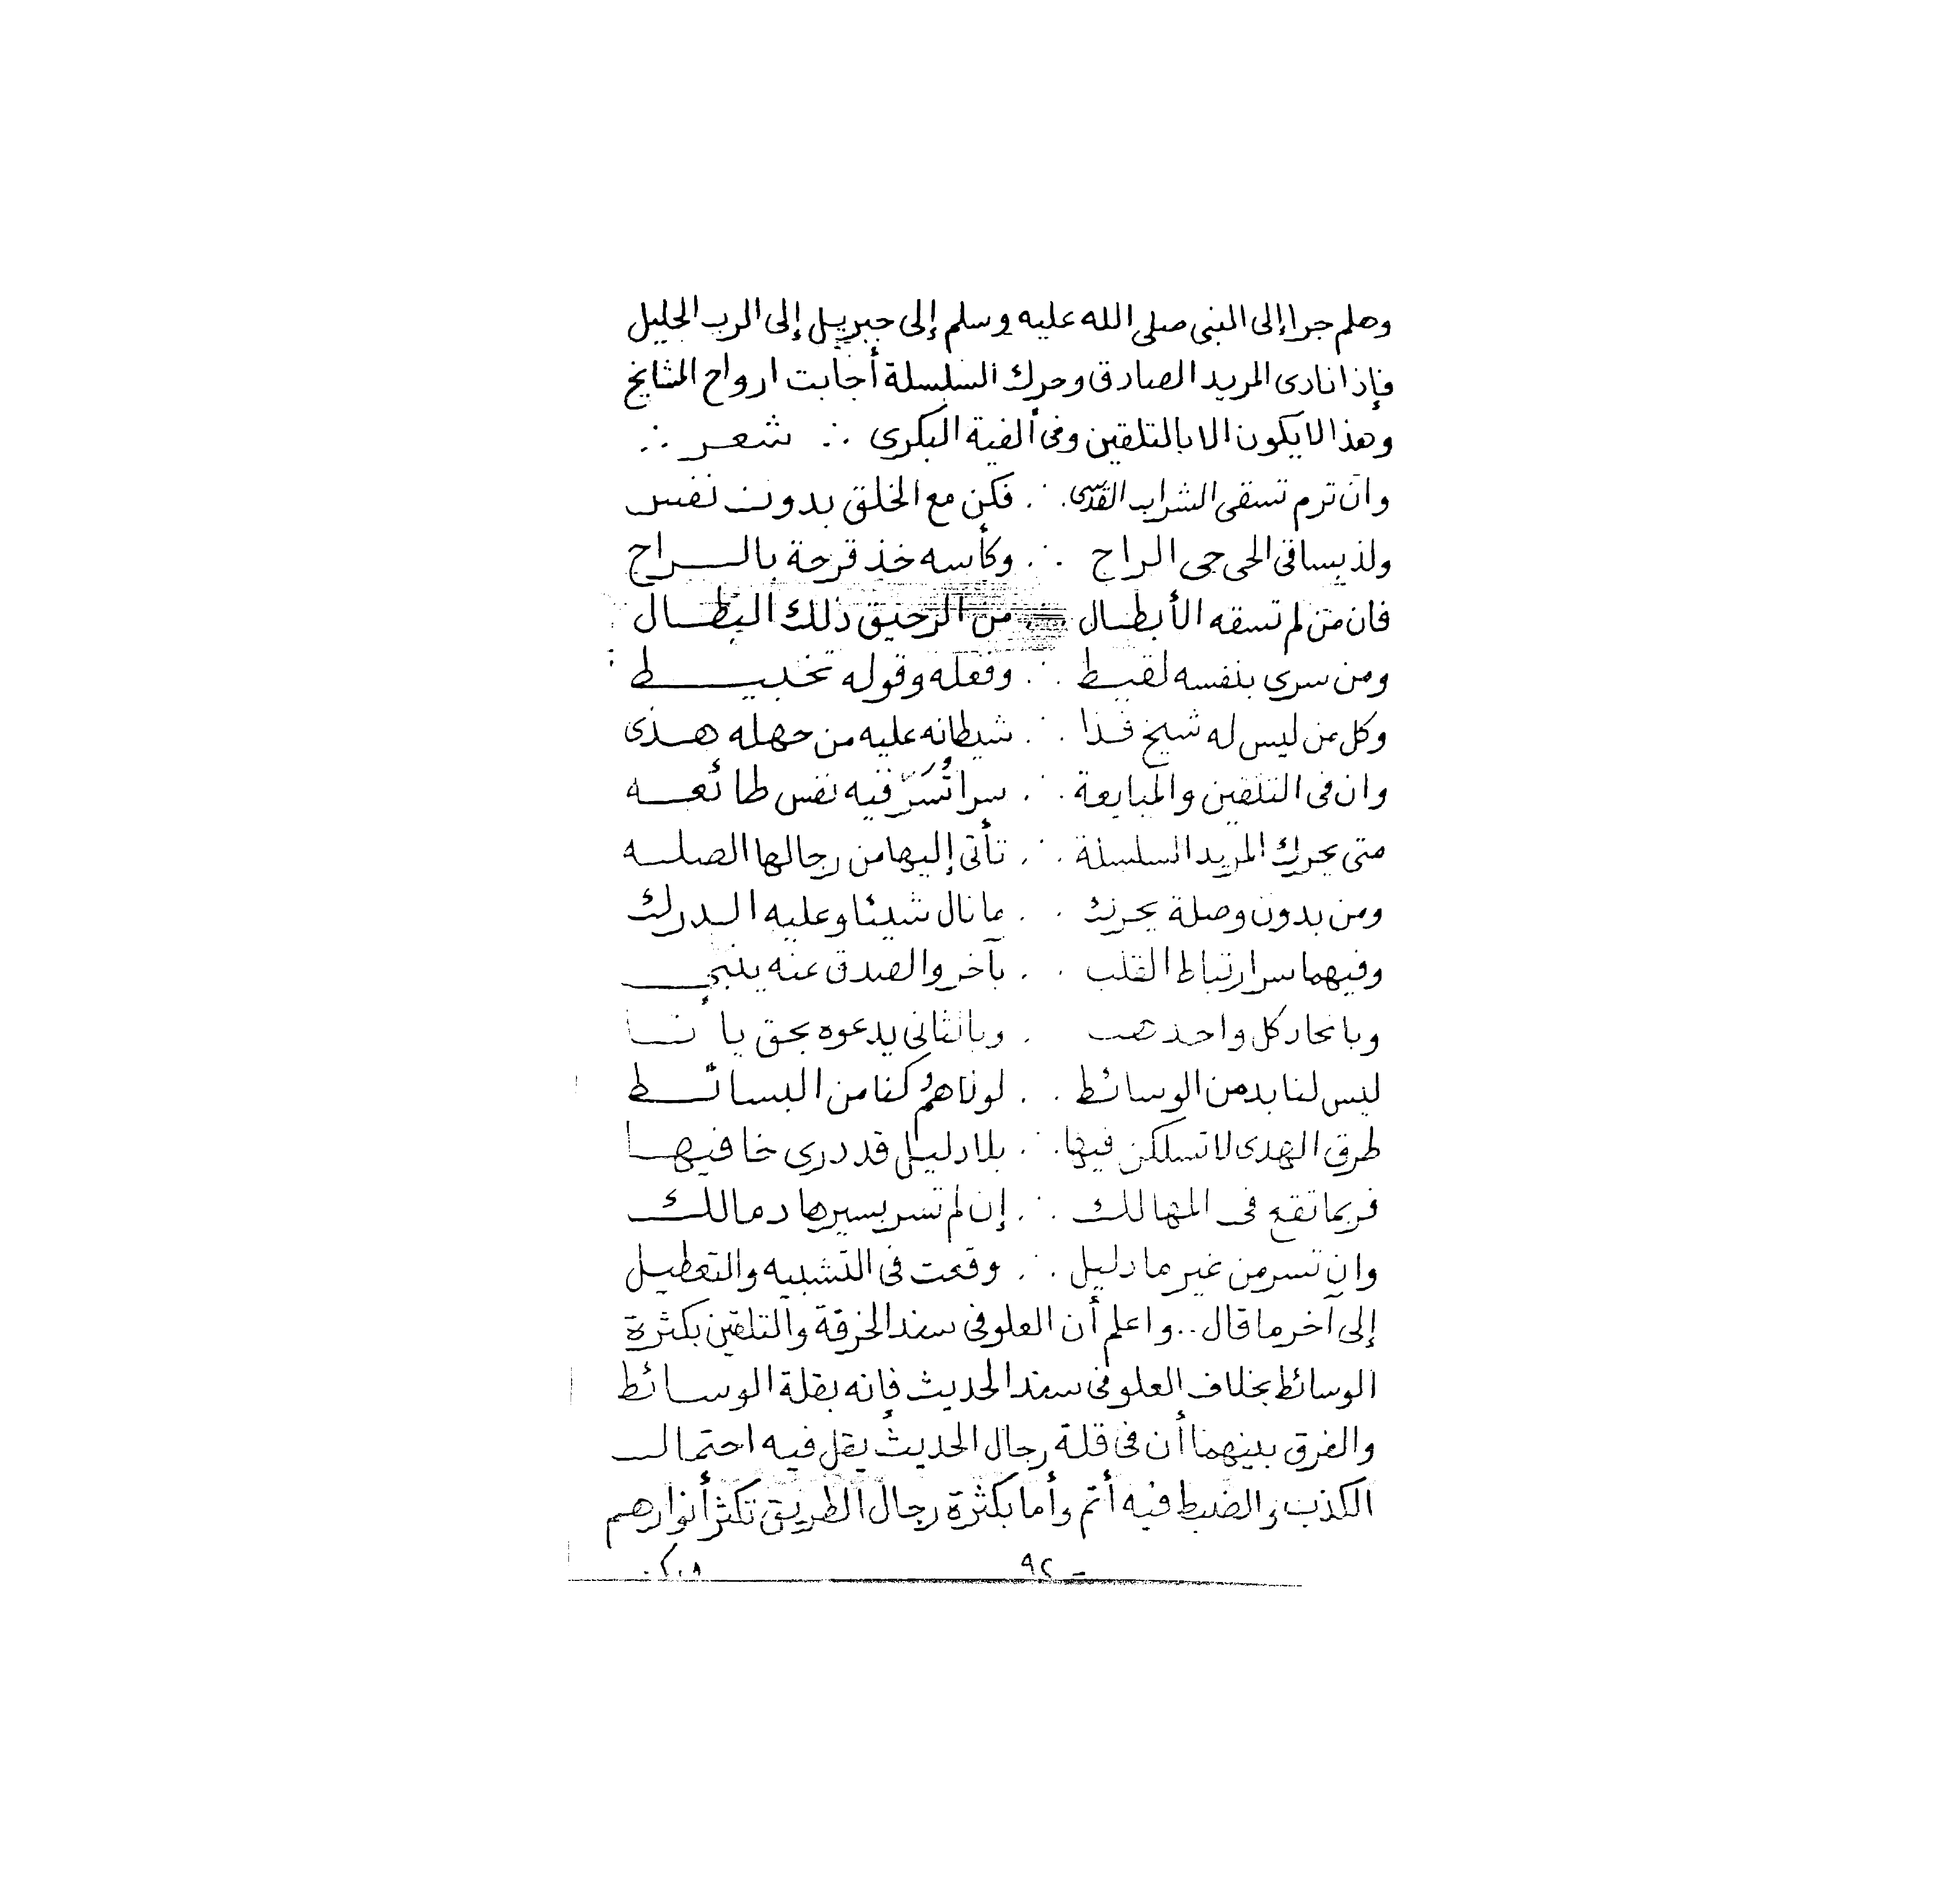 وهلم جرا إلى النبى صلى الله عليه وسلم إلى جبريل إلى الرب الجليل
فإذا نادى المريد الصادق وحرك السلسلة أجابت ارواح المشايخ
وهذا لا يكون الا بالتلقين وفى ألفية البكرى ∴ شعر ∴
وان ترم تسقى الشراب القدسى ∴ فكن مع الخلق بدون نفس
ولذ بساقى الحى حى الراح ∴ وكأسه خذ قرحة بالراح
فان من لم تسقه الأبطال ∴ من الرحيق ذلك البطال
ومن سرى بنفسه لقيط ∴ وفعله وقوله تخبيط
وكل من ليس له شيخ فذا ∴ شيطانه عليه من جهله هذى
وان فى التلقين والمبايعة ∴ سرا تُسَرّ فيه نفس طائعه
متى يحرك المريد السلسلة ∴ تأتى إليها من رجالها الصله
ومن بدون وصلة يحرك ∴ ما نال شيئا وعليه الدرك
وفيهما سر ارتباط القلب ∴ بآخر والصدق عنه ينبى
وباتحاد كل واحد ∴ وبالثانى يدعوه بحق يا أنا
ليس لنا بد من الوسائط ∴ لولاهمُ كنا من البسائط
طرق الهدى لا تسلكن فيها ∴ بلا دليل قد درى خافيها
فربما تقع فى المهالك ∴ إن لم تسر بسيرها دمالك
وان تسر من غير ما دليل ∴ وقعت فى التشبيه والتعطيل
إلى آخر ما قال .. واعلم أن العلو فى سند الخرقة والتلقين بكثرة
الوسائط بخلاف العلو فى سند الحديث فإنه بقلة الوسائط
والفرق بينهما أن فى قلة رجال الحديث يقل فيه احتمال
الكذب والضبط فيه أتم وأما بكثرة رجال الطريق تكثر أنوارهم
٩٢